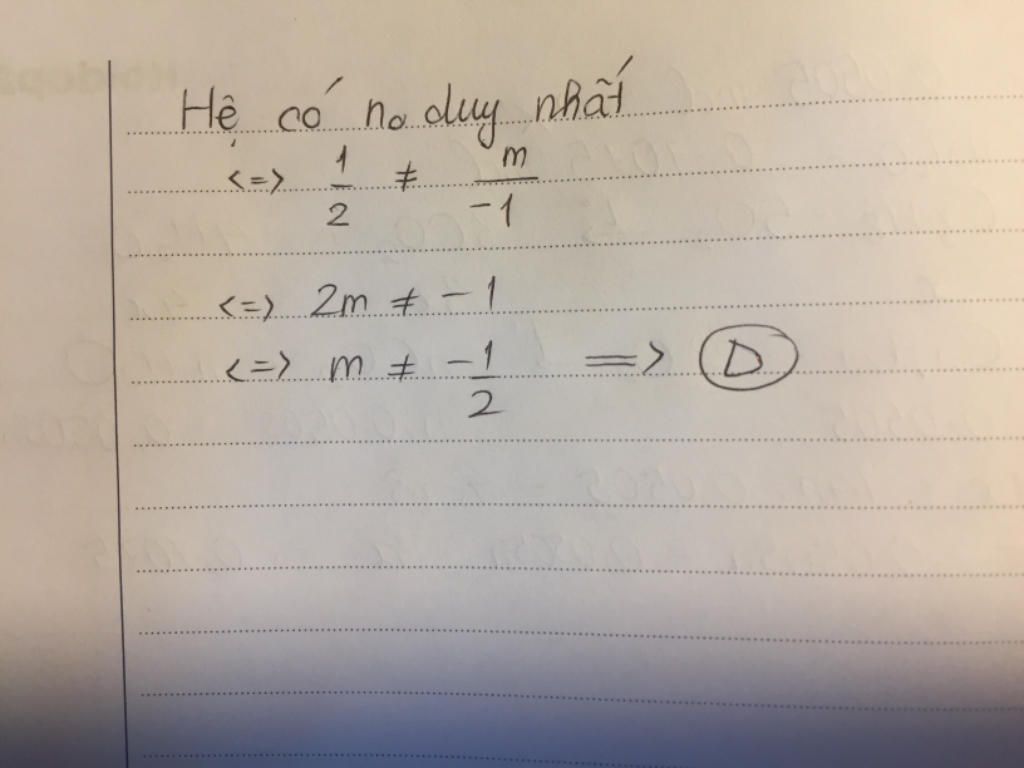 Hệ có no duy nhất
<=> 1/2 ≠ m/-1
<=> 2m ≠ -1
<=> m ≠ -1/2 => D